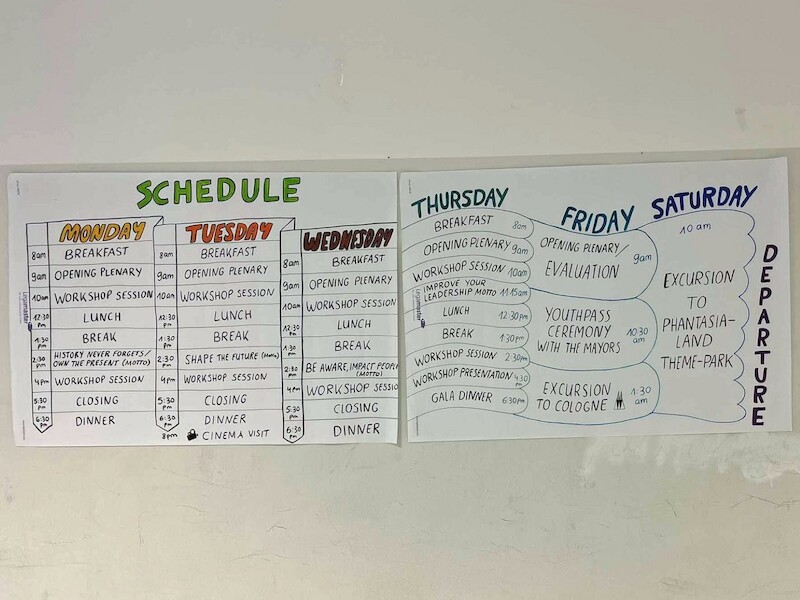 SCHEDULE
MONDAY
8am BREAKFAST
9am OPENING PLENARY
10am WORKSHOP SESSION
12:30 pm LUNCH
1:30 pm BREAK
2:30 pm HISTORY NEVER FORGETS/
OWN THE PRESENT (MOTTO)
4pm WORKSHOP SESSION
5:30 pm CLOSING
6:30 pm DINNER
TUESDAY
8am BREAKFAST
9am OPENING PLENARY
10am WORKSHOP SESSION
12:30 pm LUNCH
1:30 pm BREAK
2:30 pm SHAPE THE FUTURE (Motto)
4pm WORKSHOP SESSION
5:30 pm CLOSING
6:30 pm DINNER
8pm CINEMA VISIT
WEDNESDAY
8am BREAKFAST
9am OPENING PLENARY
10am WORKSHOP SESSION
12:30 pm LUNCH
1:30 pm BREAK
2:30 pm BE AWARE, IMPACT PEOPL
(MOTTO)
4pm WORKSHOP SESSIO
5:30 pm CLOSING
6:30 pm DINNER
Legamaster
THURSDAY
BREAKFAST 8am
OPENING PLENARY 9am
WORKSHOP SESSION 10am
IMPROVE YOUR
LEADERSHIP MOTTO 11:15am
LUNCH 12:30pm
BREAK 1:30pm
WORKSHOP SESSION 2:30pm
WORKSHOP PRESENTATION 4:30 pm
GALA DINNER 6:30pm
Legamaster
FRIDAY
OPENING PLENARY/
EVALUATION 9am
YOUTHPASS
CEREMONY 10:30 am
WITH THE MAYORS
EXCURSION 1:30
TO COLOGNE am
SATURDAY
10am
EXCURSION
TO
PHANTASIA-
LAND
THEME-PARK
DEPARTURE